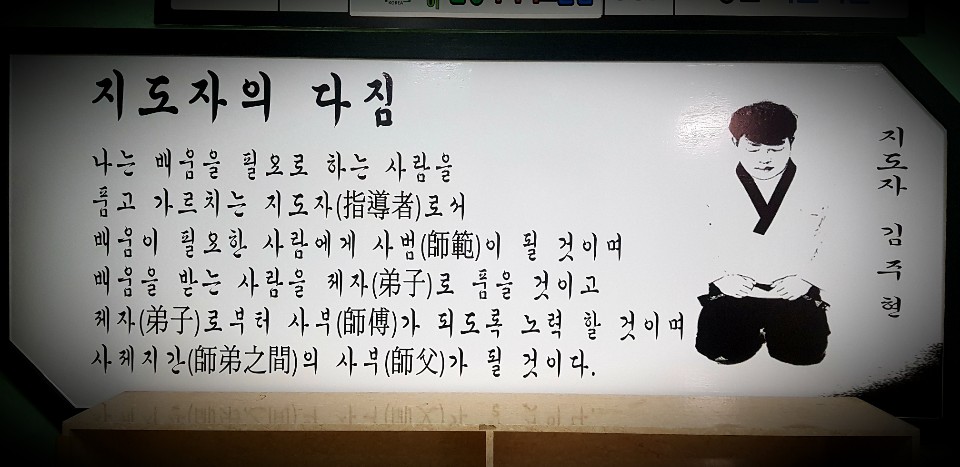 지도자의 다짐
나는 배움을 필요로 하는 사람을
품고 가르치는 지도자(指導者)로서
배움이 필요한 사람에게 사범(師範)이 될 것이며
배움을 받는 사람을 제자(弟子)로 품을 것이고
제자(弟子)로부터 사부(師傅)가 되도록 노력 할 것이며
사제지간(師弟之間)의 사부(師父)가 될 것이다.
지도자 김주현